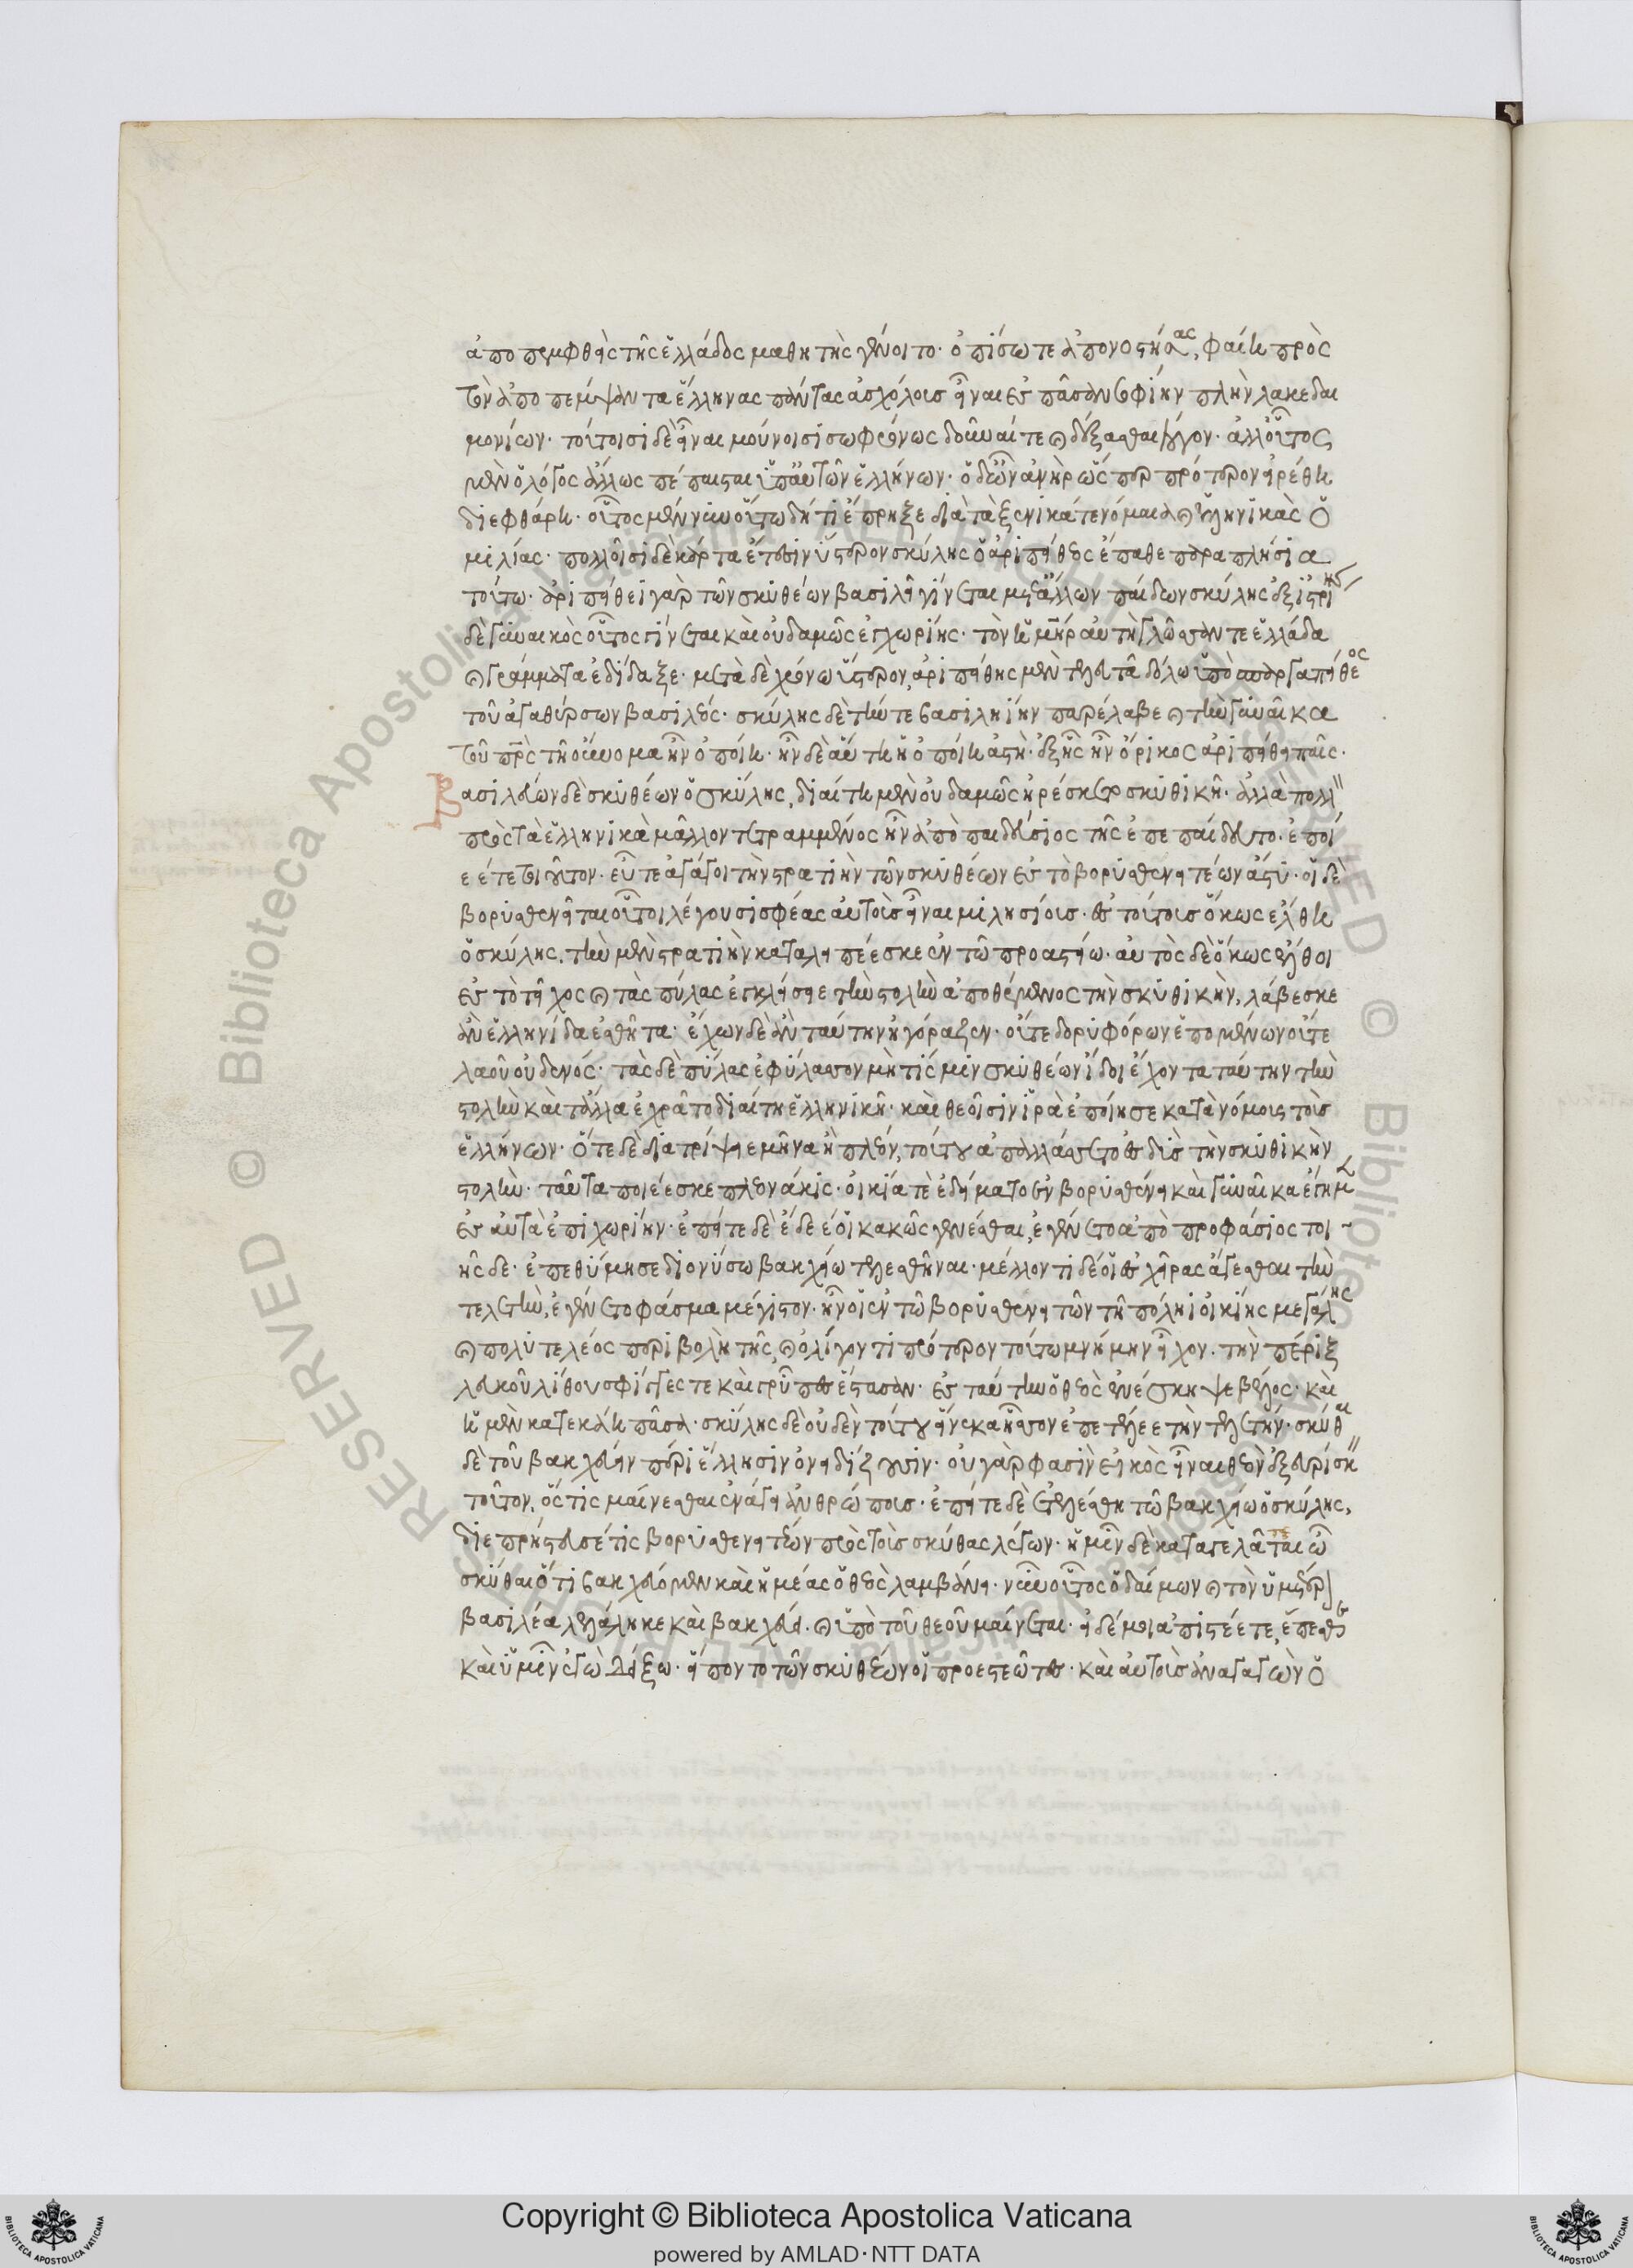 ἀποπεμφθεὶς τῆς ἑλλάδος μαθητὴς γένοιτο· ὀπίσω τε ἀπονοστήσας, φαίη πρὸς
τὸν ἀποπέμψαντα ἕλληνας πάντας ἀσχόλους εἶναι ἐς πᾶσαν σοφίην πλὴν λακεδαι
μονίων· τούτοισι δὲ εἶναι μούνοισι σωφρόνως δοῦναί τε καὶ δέξασθαι λόγον· ἀλλ' οὗτος
μὲν ὁ λόγος ἄλλως πέπαισται ὑπ' αὐτῶν ἑλλήνων· ὁ δ' ὦν ἀνὴρ ὥσπερ πρότερον εἰρέθη
διεφθάρη· οὗτος μέν νυν οὕτω δή τι ἔπρηξε διὰ τὰ ξενικά τε νόμαια καὶ ἑλληνικὰς ὁ
μιλίας· πολλοῖσι δὲ κάρτα ἔτεσιν ὕστερον σκύλης ὁ ἀριπείθεος ἔπαθε παραπλήσια
τούτω· ἀριπείθεϊ γὰρ τῶν σκυθέων βασιλῆϊ γίνεται μετ' ἄλλων παίδων σκύλης ἐξ ἰστριηνῆς
δὲ γυναικὸς οὗτος γίνεται καὶ οὐδαμῶς ἐγχωρίης· τὸν ἡ μήτηρ αὐτὴ γλῶσσάν τε ἑλλάδα
καὶ γράμματα ἐδίδαξε· μετὰ δὲ χρόνω ὕστερον, ἀριπείθης μὲν τελευτᾶ δόλω ὑπὸ σπαργαπείθεος
τοῦ ἀγαθύρσων βασιλέος· σκύλης δὲ τήν τε βασιληίην παρέλαβε καὶ τὴν γυναῖκα
τοῦ πατρὸς τῆ οὔνομα ἦν ὀποίη· ἦν δὲ αὕτη ἡ ὀποίη ἀστὴ· ἐξ ἧς ἦν ὄρικος ἀριπείθει παῖς·
βασιλεύων δὲ σκυθέων ὁ σκύλης, διαίτη μὲν οὐδαμῶς ἠρέσκετο σκυθικῆ· ἀλλὰ πολλὸν
πρὸς τὰ ἑλληνικὰ μᾶλλον τετραμμένος ἦν ἀπὸ παιδεύσιος τῆς ἐπεπαίδευτο· ἐποί
εέ τε τοιοῦτον· εὖτε ἀγάγοι τὴν στρατιὴν τῶν σκυθέων ἐς τὸ βορυσθενειτέων ἄστυ· οἱ δὲ
βορυσθενεῖται οὗτοι λέγουσι σφέας αὐτοὺς εἶναι μιλησίους· ἐς τούτους ὅκως ἔλθη
ὁ σκύλης, τὴν μὲν στρατιὴν καταλειπέεσκε ἐν τῶ προαστείω· αὐτὸς δὲ ὅκως ἔλθοι
ἐς τὸ τεῖχος καὶ τὰς πύλας ἐγκλήσειε τὴν στολὴν ἀποθέμενος τὴν σκυθικὴν, λάβεσκε
ἂν ἑλληνίδα ἐσθῆτα· ἔχων δὲ ἂν ταύτην ἠγόραζεν· οὔτε δορυφόρων ἑπομένων οὔτε
λαοῦ οὐδενός· τὰς δὲ πύλας ἐφύλασσον μή τίς μιν σκυθέων ἴδοι ἔχοντα ταύτην τὴν
στολὴν καὶ τἆλλα ἐχρᾶτο διαίτη ἑλληνικῆ· καὶ θεοῖσιν ἱρὰ ἐποίησε κατὰ νόμους τοὺς
ἑλλήνων· ὅτε δὲ διατρίψειε μῆνα ἢ πλέον τούτου ἀπαλλάσσετο ἐνδὺς τὴν σκυθικὴν
στολὴν· ταῦτα ποιέεσκε πλεονάκις· οἰκία τὲ ἐδείματο ἐν βορυσθένει καὶ γυναῖκα ἔγημε
ἐς αὐτὰ ἐπιχωρίην· ἐπείτε δὲ ἔδεέ οἱ κακῶς γενέσθαι, ἐγένετο ἀπὸ προφάσιος τοι
ῆσδε· ἐπεθύμησε διονύσω βακχείω τελεσθῆναι· μέλλοντι δέ οἱ ἐς χεῖρας ἄγεσθαι τὴν
τελετὴν, ἐγένετο φάσμα μέγιστον· ἦν οἱ ἐν τῶ βορυσθενειτῶν τῆ πόληι οἰκίης μεγάλης
καὶ πολυτελέος περιβολὴ τῆς καὶ ὀλίγον τι πρότερον τούτω μνήμην εἶχον· τὴν πέριξ
λευκοῦ λίθου σφίγγες τε καὶ γρῦπες ἕστασαν· ἐς ταύτην ὁ θεὸς ἐνέσκηψε βέλος· καὶ
ἡ μὲν κατεκάη πᾶσα· σκύλης δὲ οὐδὲν τούτου εἵνεκα ἧσσον ἐπετέλεε τὴν τελετήν· σκύθαι
δὲ τοῦ βακχεύειν πέρι ἕλλησιν ὀνειδίζουσιν· οὐ γὰρ φασὶν εἰκὸς εἶναι θεὸν ἐξευρίσκειν
τοῦτον, ὅστις μαίνεσθαι ἐνάγει ἀνθρώπους· ἐπείτε δὲ ἐτελέσθη τῶ βακχείω ὁ σκύλης,
διεπρήστευσέ τις βορυσθενειτέων πρὸς τοὺς σκύθας λέγων· ἡμῖν δὲ καταγελᾶται ὦ
σκύθαι ὅτι βακχεύομεν καὶ ἡμέας ὁ θεὸς λαμβάνει· νῦν οὗτος ὁ δαίμων καὶ τὸν ὑμέτερον
βασιλέα λελάληκε καὶ βακχεύει· καὶ ὑπὸ τοῦ θεοῦ μαίνεται· εἰ δέ μοι ἀπιστέετε, ἕπεσθε
καὶ ὑμῖν ἐγὼ δείξω· εἵποντο τῶν σκυθέων οἱ προεστεῶτες· καὶ αὐτοὺς ἀναγαγὼν ὁ
Copyright © Biblioteca Apostolica Vaticana
powered by AMLAD·NTT DATA